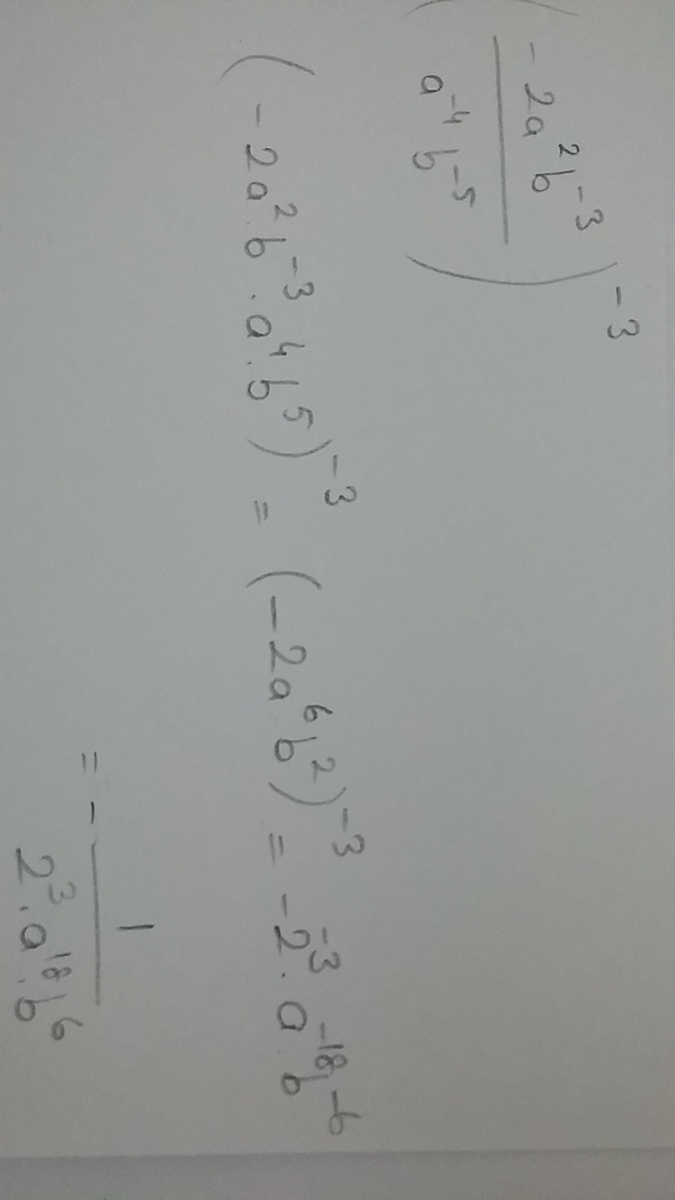 (-2a²b⁻³ / a⁻⁴b⁻⁵)⁻³
(-2a²b⁻³ · a⁴·b⁵)⁻³ = (-2a⁶b²)⁻³ = -2⁻³ · a⁻¹⁸b⁻⁶
= - 1 / 2³·a¹⁸·b⁶